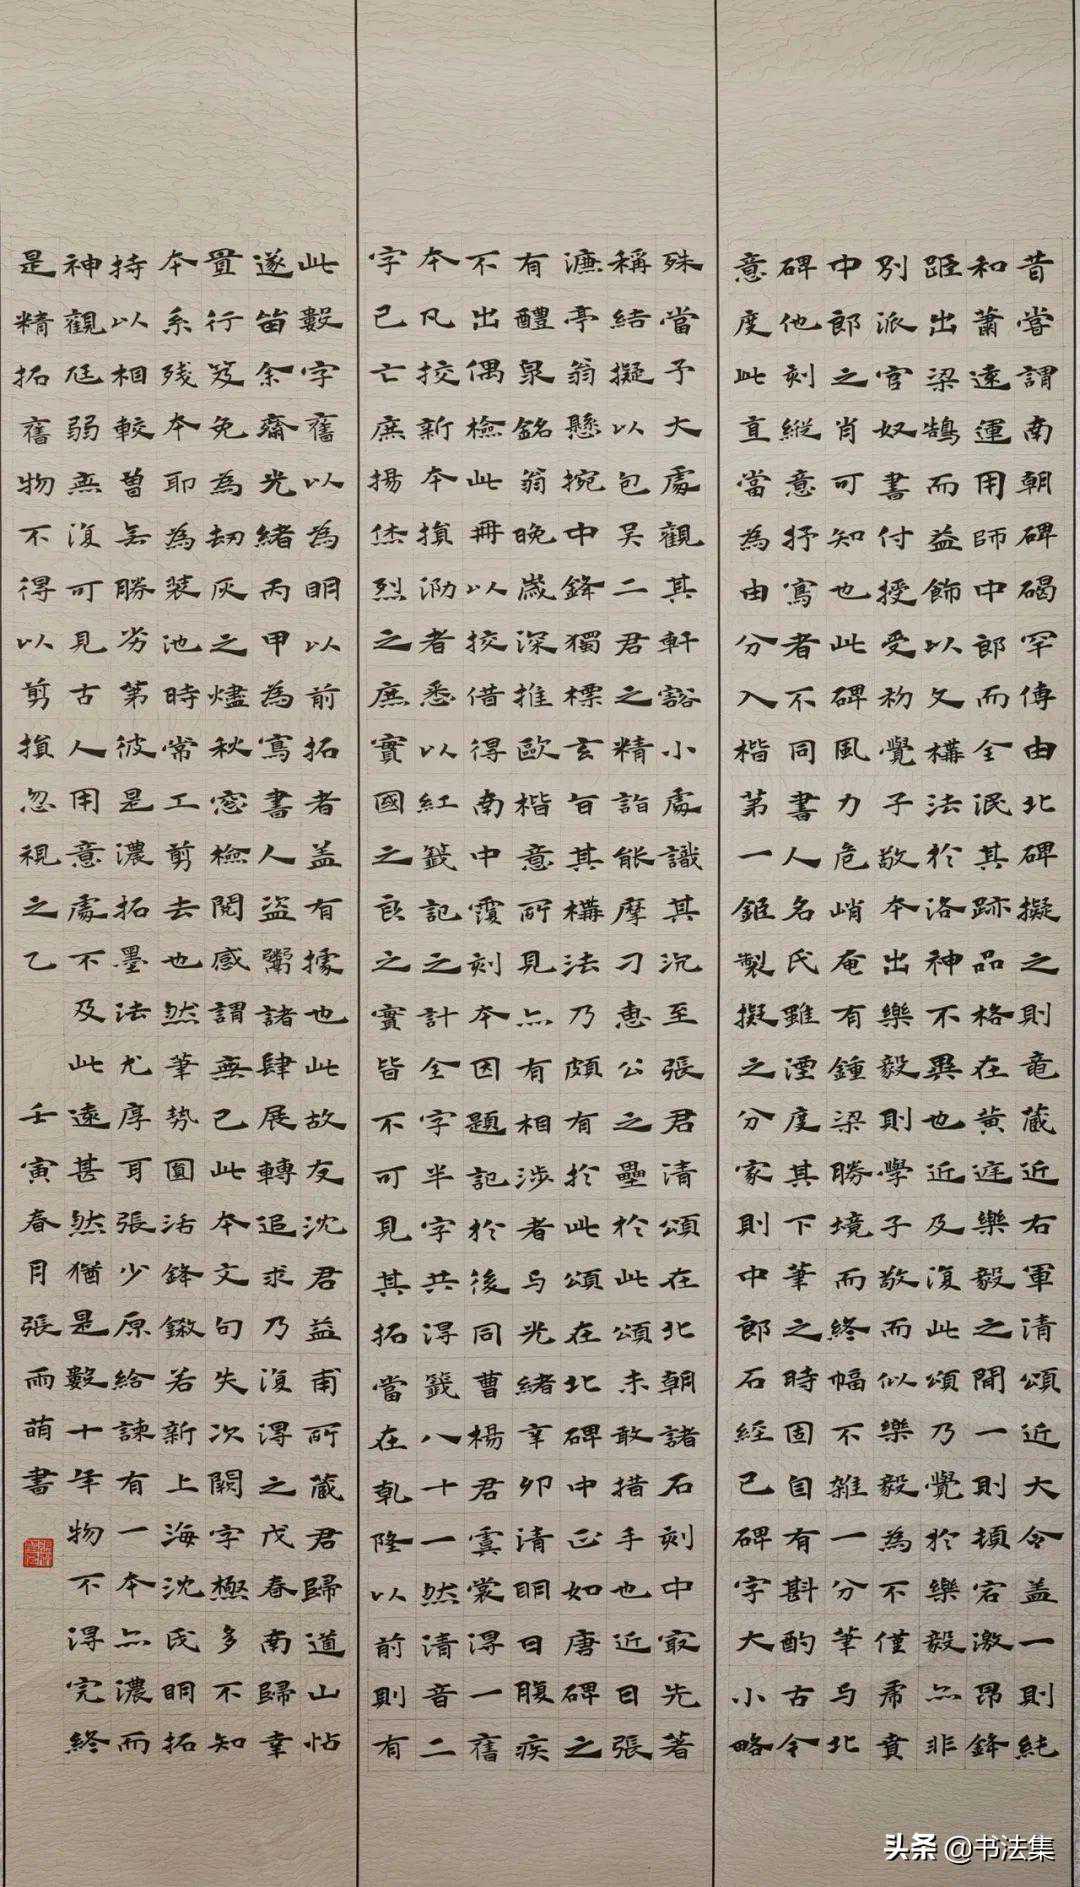 昔嘗謂南朝碑碣罕傳由北碑擬之則竜蔵近右軍清頌近大令蓋一則純
和蕭遠運用師中郎而全泯其跡品格在黄庭樂毅之間一則頓宕激昂鋒
距出梁鵠而益飾以文構法於洛神不異也近及復此頌乃覺於樂毅亦非
別派官奴書付授受初覺子敬本出樂毅則學子敬而似樂毅為不僅帚賁
中郎之肖可知也此碑風力危峭奄有鍾梁勝境而終幅不雜一分筆与北
碑他刻縱意抒寫者不同書人名氏雖湮度其下筆之時固自有斟酌古今
意度此直當為由分入楷第一鉅製擬之分家則中郎石經已碑字大小略
殊當予大處觀其軒豁小處識其沉至張君清頌在北朝諸石刻中㝡先著
稱結擬以包吳二君之精詣能摩刁惠公之壘於此頌未敢措手也近日張
濂亭翁懸捥中鋒獨標玄旨其構法乃頗有於此頌在北碑中正如唐碑之
有醴泉銘翁晚歲深推歐楷意所見亦有相涉者与光緒辛卯清明日腹疾
不出偶檢此冊以挍借得南中覆刻本因題記於後同曹楊君寞裳得一舊
本凡挍新本損泐者悉以紅籤記之計全字半字共得籤八十一然清音二
字已亡庶揚烋烈之庶實國之良之實皆不可見其拓當在乹隆以前則有
此數字舊以為明以前拓者盖有據也此故友沈君益甫所蔵君歸道山帖
遂笛余齋光緒丙甲為寫書人盜鬻諸肆展轉追求乃復得之戊春南歸幸
置行笈免為劫灰之燼秋窓檢閱感謂無已此本文句失次闕字極多不知
本系残本耶為装池時常工剪去也然筆勢圓活鋒鏾若新上海沈氏明拓
持以相較曽无勝劣第彼是濃拓墨法尤厚耳張少原給諫有一本亦濃而
神觀尫弱無復可見古人用意處不及此遠甚然猶是數十年物不得完終
是精拓舊物不得以剪損忽視之乙 壬寅春月張雨萌書
头条 @书法集